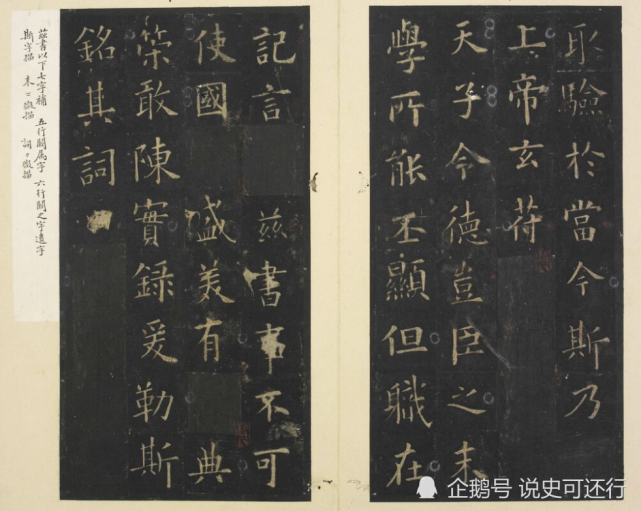 取驗於當今斯乃
上帝玄苻
天子令德豈臣之末
學所能丕顯但職在
記言茲書事不可
使國盛美有典
策敢陳實錄爰勒斯
銘其詞
茲書以下七字補 五行闕属字 六行闕之字遺字
斯字描 末二微描 詞々微描
企鹅号 说史可还行